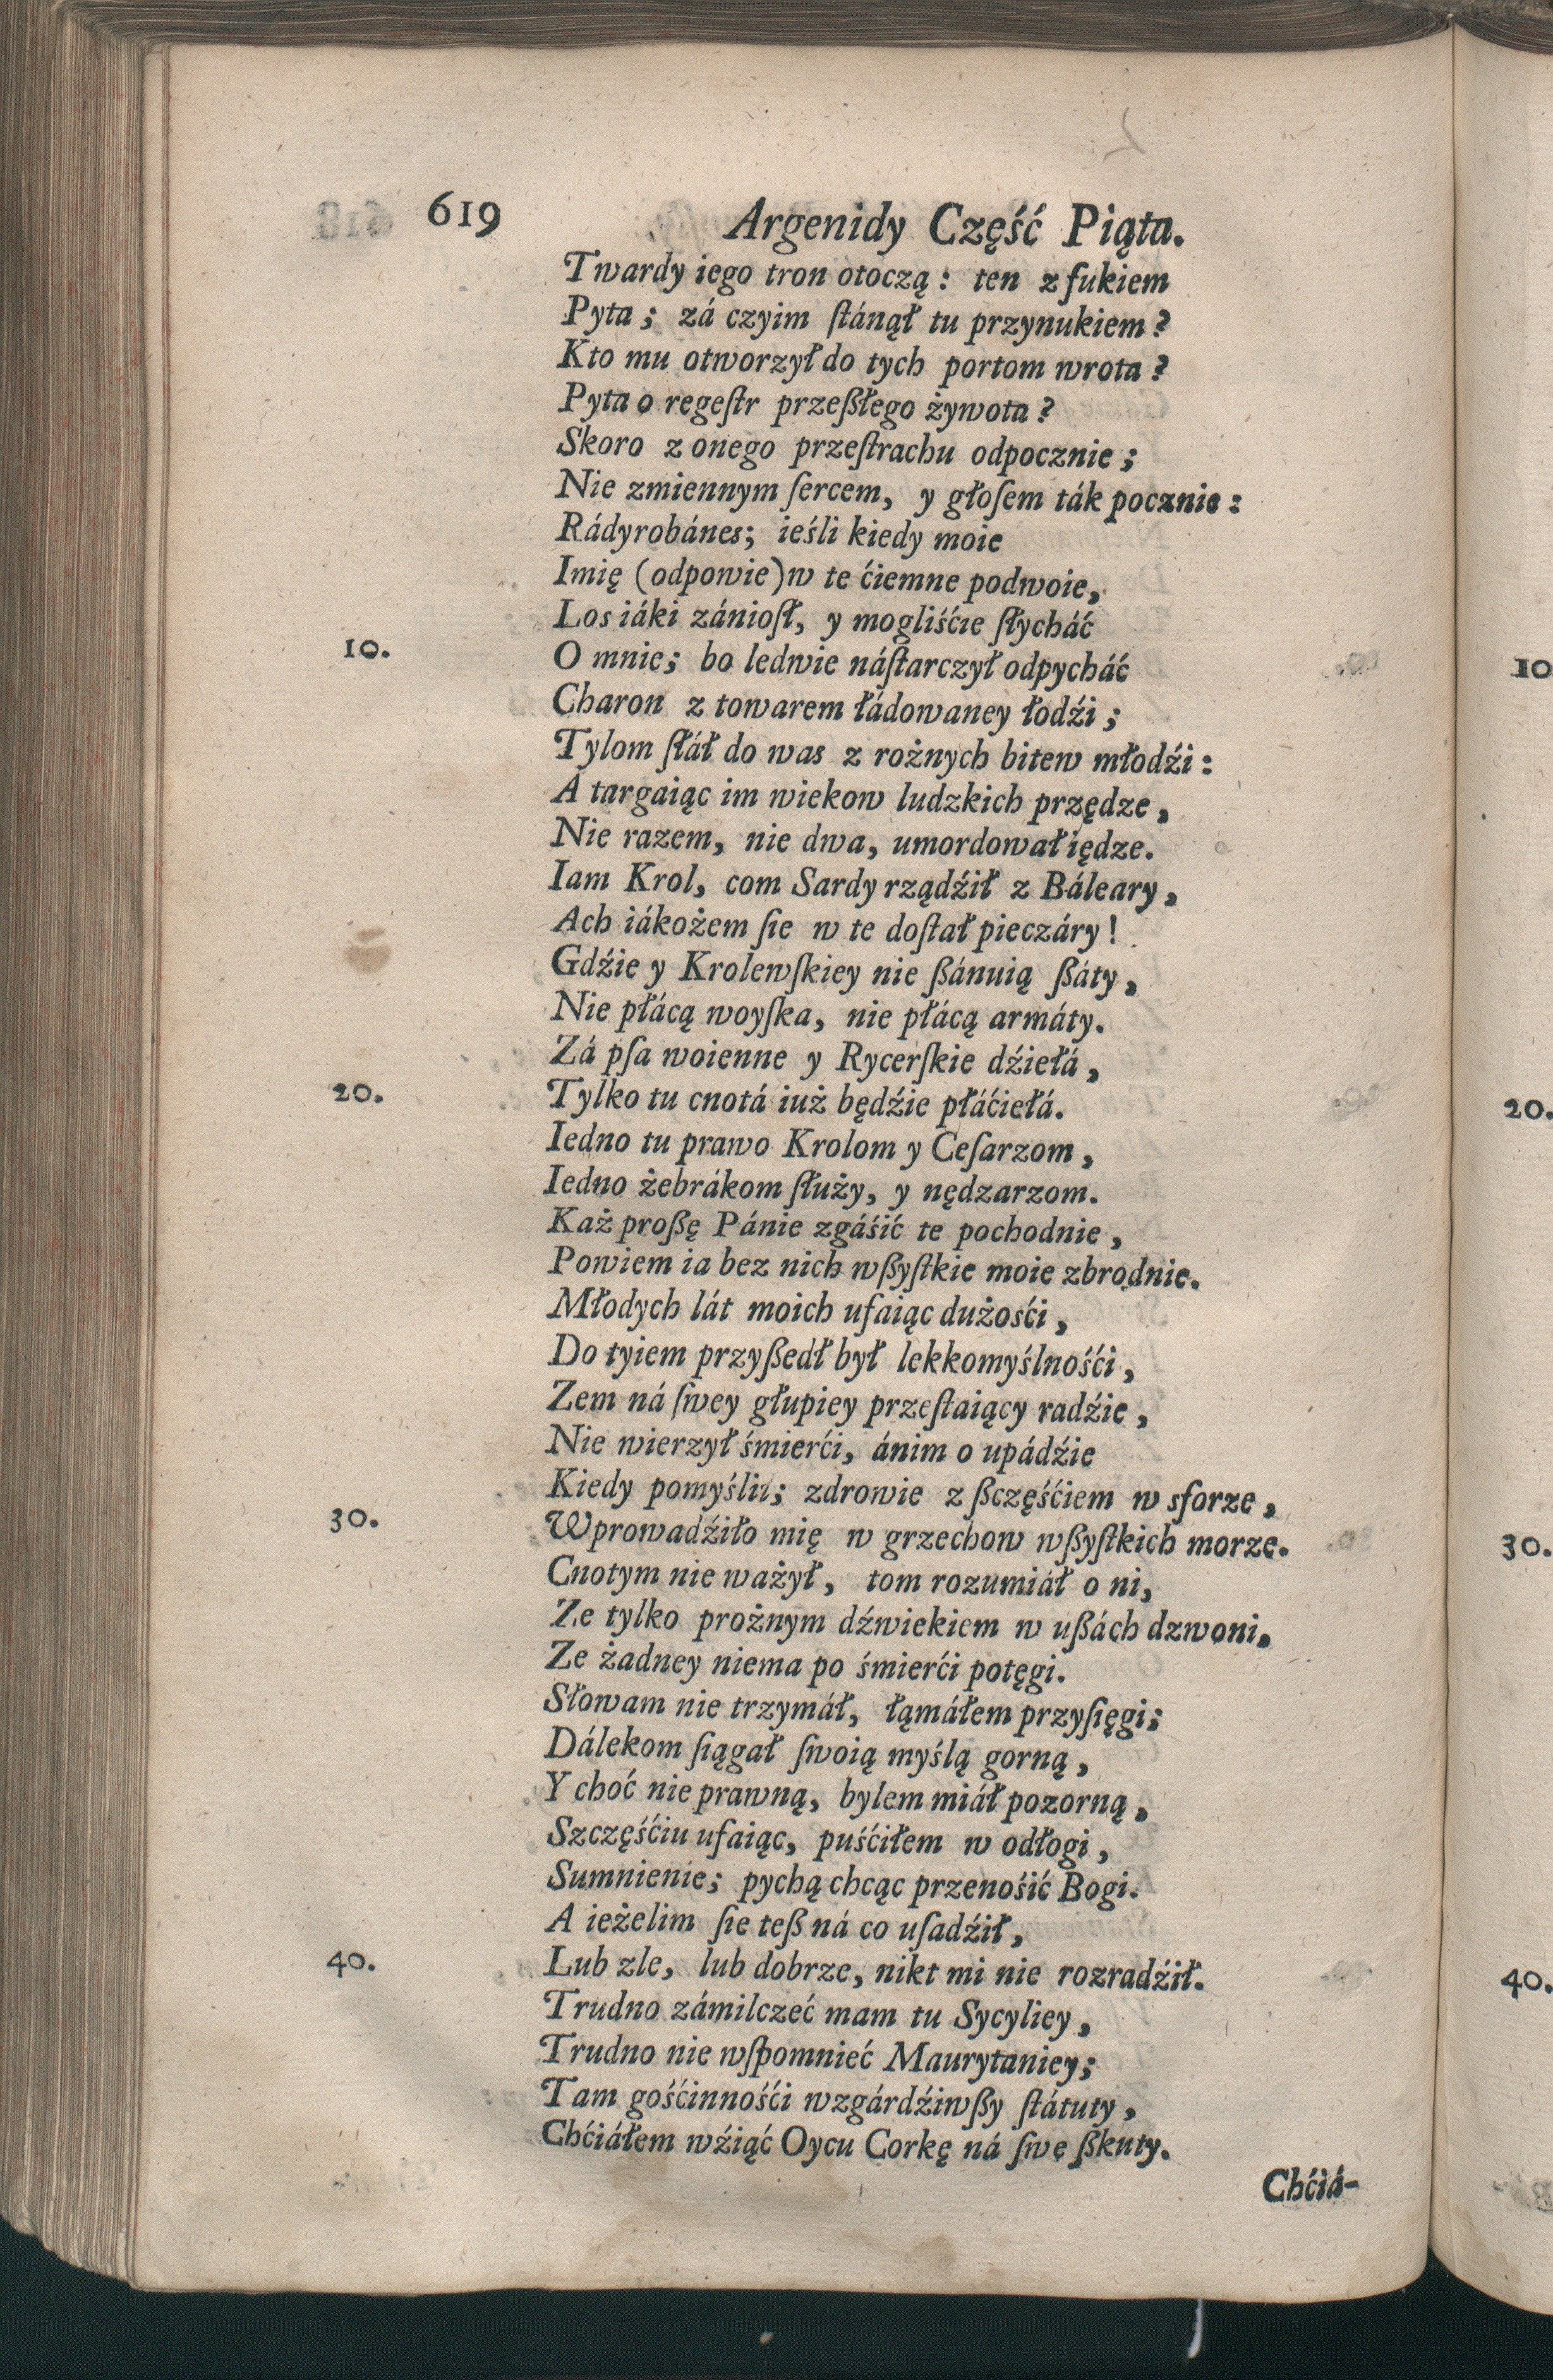 619 Argenidy Część Piąta.
Twardy iego tron otoczą: ten z fukiem
Pyta; zá czyim ſtánął tu przynukiem?
Kto mu otworzył do tych portom wrota?
Pyta o regeſtr przeßłego żywota?
Skoro z onego przeſtrachu odpocznie;
Nie zmiennym ſercem, y głoſem ták pocznie:
Rádyrobánes; ieśli kiedy moie
Imię (odpowie) w te ćiemne podwoie,
Los iáki zánioſł, y mogliśćie ſłycháć
10. O mnie; bo ledwie náſtarczył odpycháć
Charon z towarem łádowaney łodźi;
Tylom ſłáł do was z rożnych bitew młodźi:
A targaiąc im wiekow ludzkich przędze,
Nie razem, nie dwa, umordował iędze.
Iam Krol, com Sardy rządźił z Báleary,
Ach iákożem ſie w te doſtał pieczáry!
Gdźie y Krolewſkiey nie ßánuią ßáty,
Nie płácą woyſka, nie płácą armáty.
Zá pſa woienne y Rycerſkie dźiełá,
20. Tylko tu cnotá iuż będźie płáćiełá.
Iedno tu prawo Krolom y Ceſarzom,
Iedno żebrákom ſłuży, y nędzarzom.
Każ proßę Pánie zgáśić te pochodnie,
Powiem ia bez nich wßyſtkie moie zbrodnie.
Młodych lát moich ufaiąc dużośći,
Do tyiem przyßedł był lekkomyślnośći,
Zem ná ſwey głupiey przeſtaiący radźie,
Nie wierzył śmierći, ánim o upádźie
Kiedy pomyślił; zdrowie z ßczęśćiem w sforze,
30. Wprowadźiło mię w grzechow wßyſtkich morze.
Cnotym nie ważył, tom rozumiáł o ni,
Ze tylko prożnym dźwiekiem w ußách dzwoni.
Ze żadney niema po śmierći potęgi.
Słowam nie trzymáł, łąmáłem przyſięgi;
Dálekom ſiągał ſwoią myślą gorną,
Y choć nie prawną, bylem miáł pozorną,
Szczęśćiu ufaiąc, puśćiłem w odłogi,
Sumnienie; pychą chcąc przenośić Bogi.
A ieżelim ſie teß ná co uſadźił,
40. Lub zle, lub dobrze, nikt mi nie rozradźił.
Trudno zámilczeć mam tu Sycyliey,
Trudno nie wſpomnieć Maurytaniey;
Tam gośćinnośći wzgárdźiwßy ſtátuty,
Chćiáłem wźiąć Oycu Corkę ná ſwę ßkuty.
Chćiá-
10
20.
30.
40.